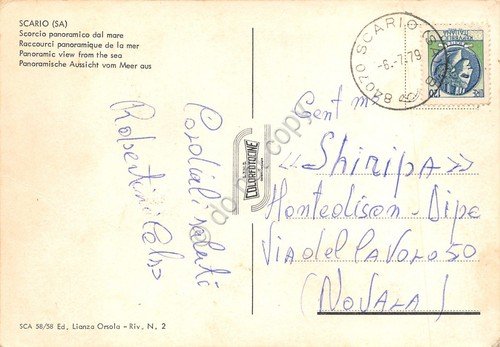 SCARIO (SA)
Scorcio panoramico dal mare
Raccourci panoramique de la mer
Panoramic view from the sea
Panoramische Aussicht vom Meer aus
84070 SCARIO
-6.-7.79
120
Cordiali saluti
Robertini Celso
COLORFOTOCINE
do not copy
Gent mo
«Shiripa»
Montedison - Dipe
Via del Lavoro 50
(Novara)
SCA 58/58 Ed, Lianza Orsola - Riv, N, 2